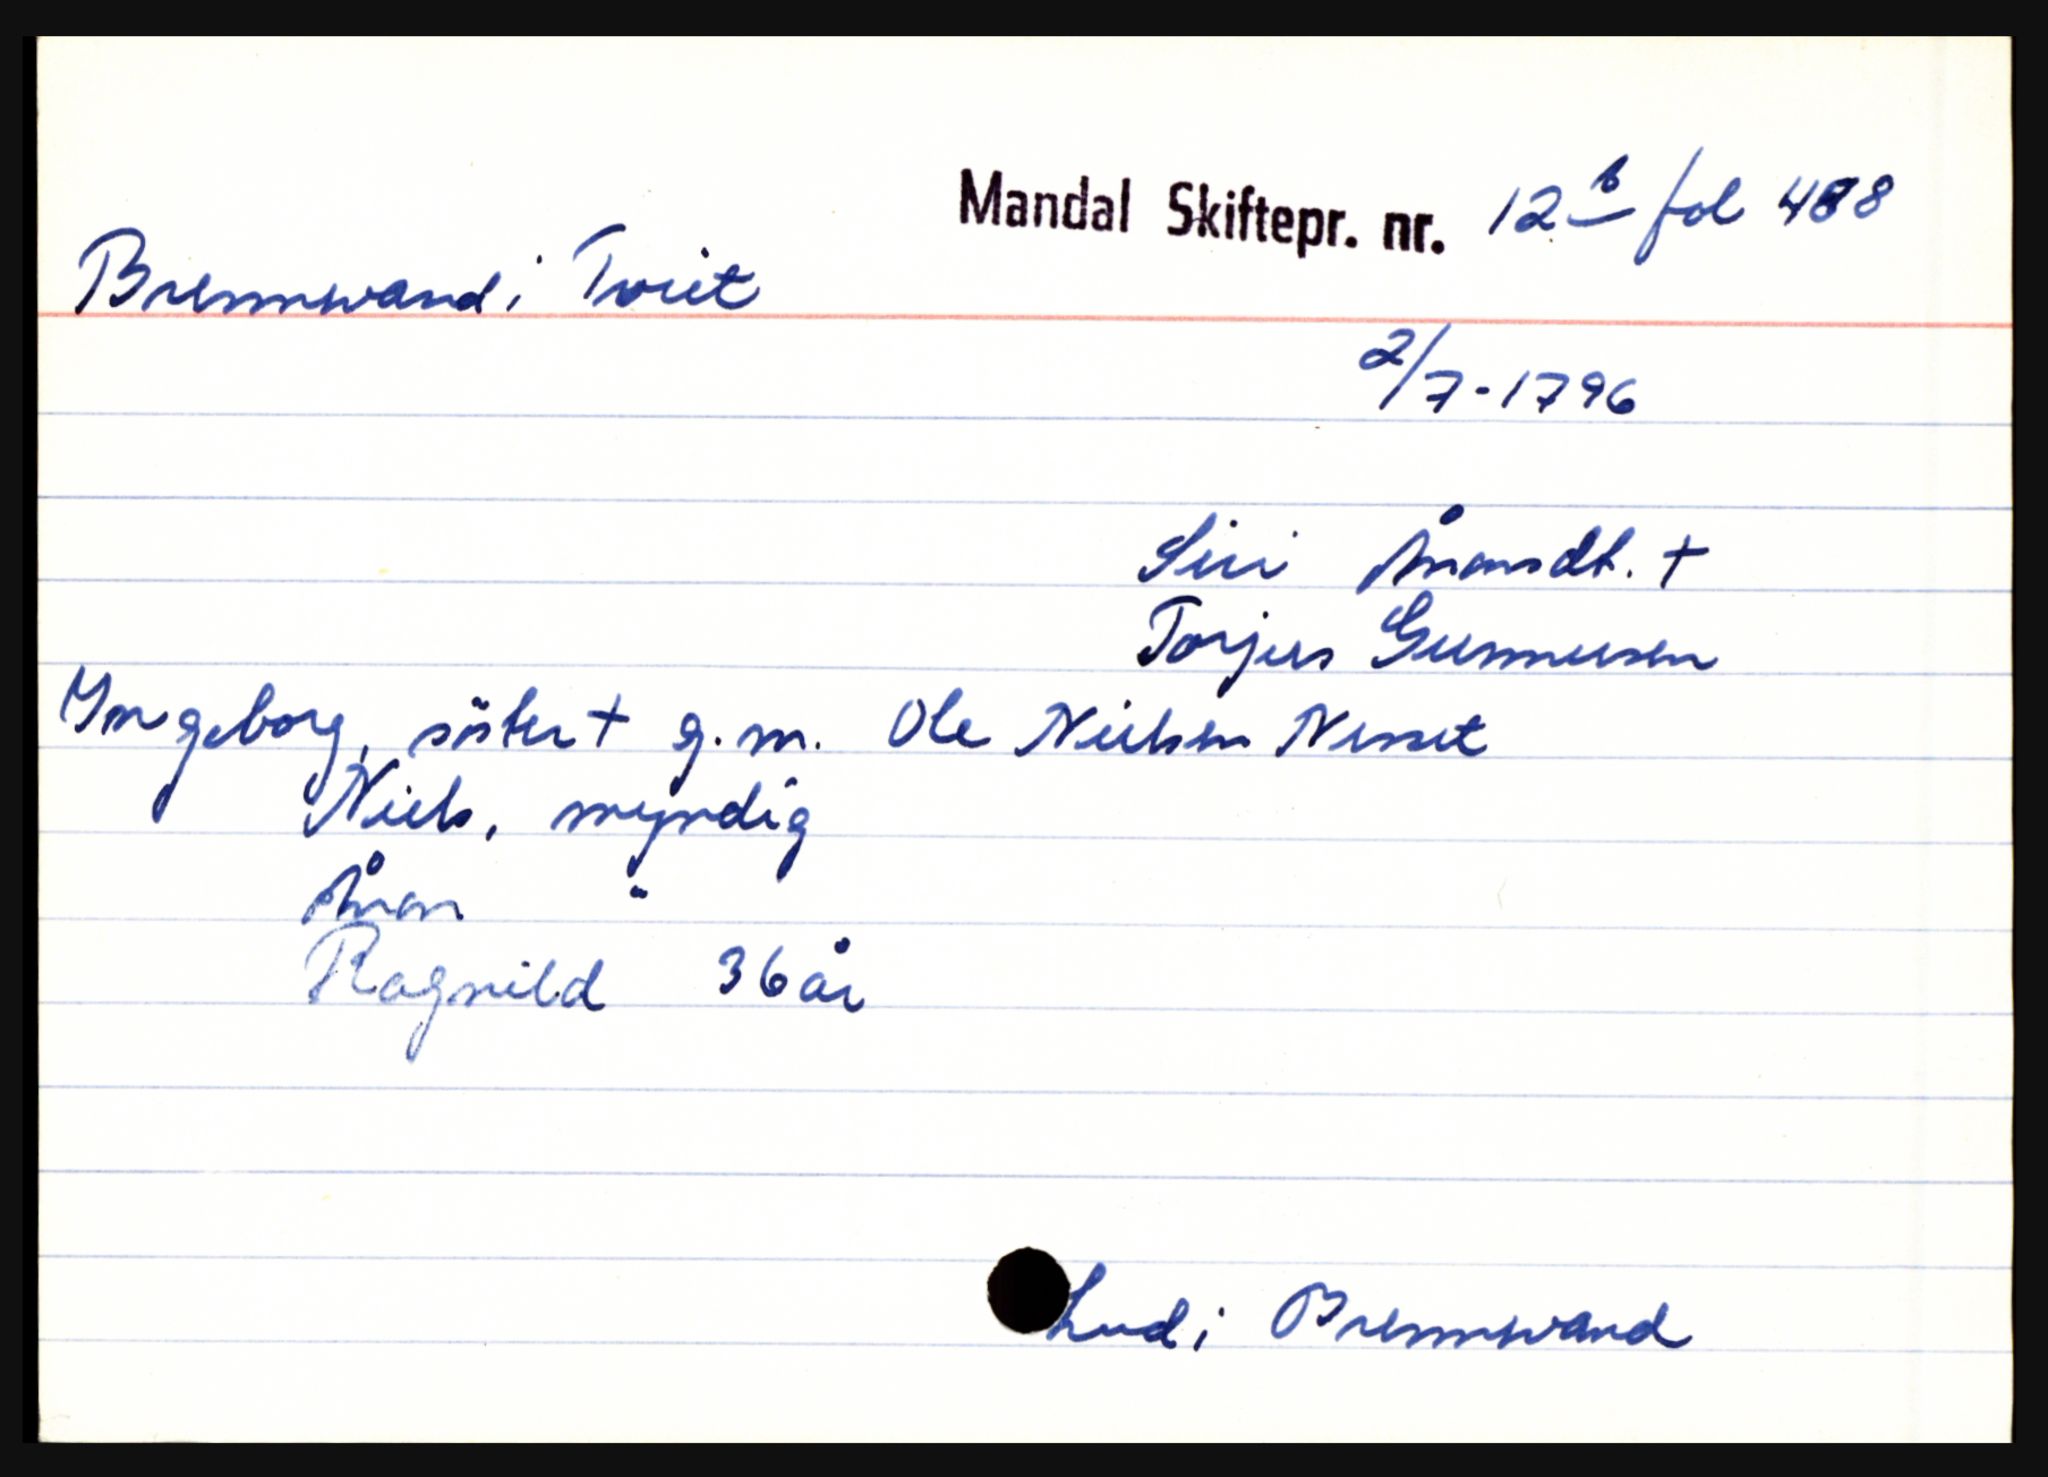 Mandal Skiftepr. nr. 12 b fol 488
Brennwand i Tveit
2/7-1796
Siri Ånonsdt. +
Torjus Gunnusen
Ingeborg, söster + g.m. Ole Nielsen Nesset
Niels, myndig
Ånon "
Ragnild 36 år
i Brennwand